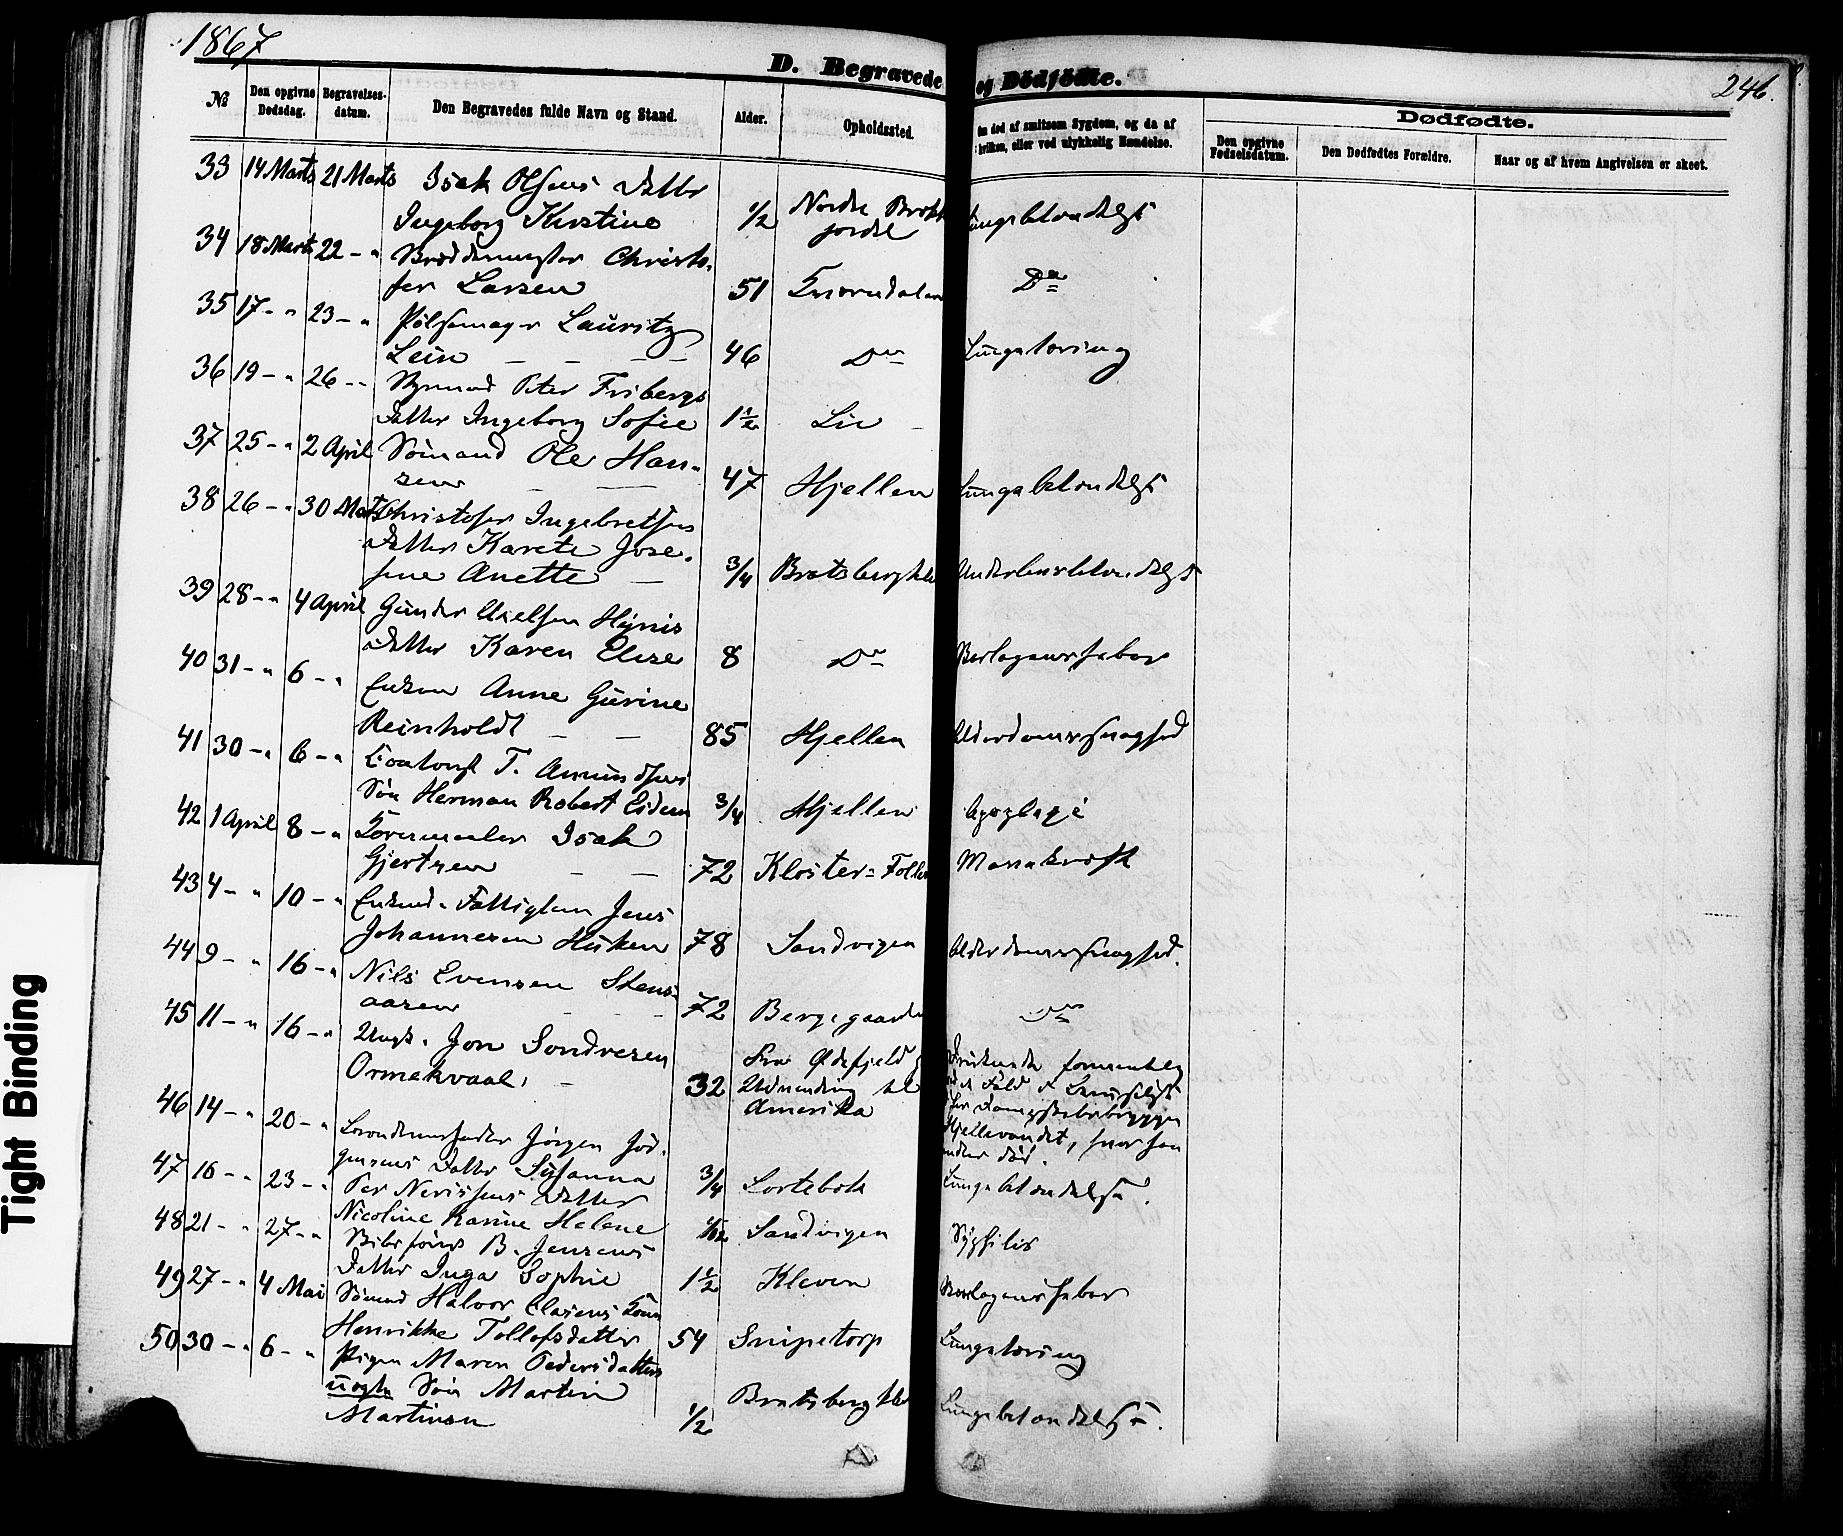 1867
D. Begravede og Dödfödte.
246.
No
Den opgivne Dødsdag.
Begravelses-datum.
Den Begravedes fulde Navn og Stand.
Alder.
Opholdssted.
død af smitsom Sygdom, og da af
hvilken, eller ved ulykkelig Hændelse.
Dødfødte.
Den opgivne Fødselsdatum.
Den Dødfødtes Forældre.
Naar og af hvem Angivelsen er skeet.
33 14 Marts 21 Marts Isak Olsens Datter
Ingeborg Kirstine 1/2 Nordre Brekke
jordet Lungebetændelse
34 18 Marts 22 - " Christo-
fer Larsen 51 Do
35 17 - " 23 - " Pølsemager Lauritz
Lein 46 Do Lungetæring
36 19 - " 26 - - Peter Fribergs
Datter Ingeborg Sofie 1 1/2 Lie
37 25 - " 2 April Sømand Ole Han-
sen 47 Hjellen Lungebetændelse
38 26 - " 30 Marts Christofer Ingebretsens
Datter Karete Jose-
fine Anette 3/4 Bratsbergkl Underlivsbetændelse
39 28 - " 4 April Gunder Axelsen
Datter Karen Elise 8 Do
40 31 - " 6 - " Enken Anne Gurine
Reinholdt 85 Hjellen Alderdomssvaghed
41 30 - " 6 - " T. Amundsens
Søn Herman Robert 3/4 Hjellen Apoplexi
42 1 April 8 - " Isak
Gjertsen 72 Kloster-Follen Mavekræft
43 4 - " 10 - " Enkem. Fattiglem Jens
Johannesen 78 Sandvigen Alderdomssvaghed.
44 9 - " 16 - " Nils Evensen Stens-
aasen 72 Bergegaarden Do
45 11 - " 16 - " Ungk. Jon Sondresen
Ormekvaal, 32 Fra
Udvandring til
Amerika
Druknede formentlig
ved Fald
Hjellevandet, hvor han
46 14 - " 20 - " Jørgen Jør-
gensens Datter Susanna 3/4 Lortebok Lungebetændelse.
47 16 - " 23 - " Per Nerissens Datter
Nicoline Karine Helene 1/12 Sandvigen Syphilis
48 21 - " 27 - " B. Jensens
Datter Inga Sophie 1 1/2 Kleven
49 27 - " 4 Mai Sømand Halvor Clasens Kone
Henrikke Tollefsdatter 54 Snipetorp Lungetæring
50 30 - " 6 - " Pigen Maren Pedersdatters
uægte Søn Martin
Martinsen 1/2 Bratsbergkl Lungebetændelse.
Tight Binding